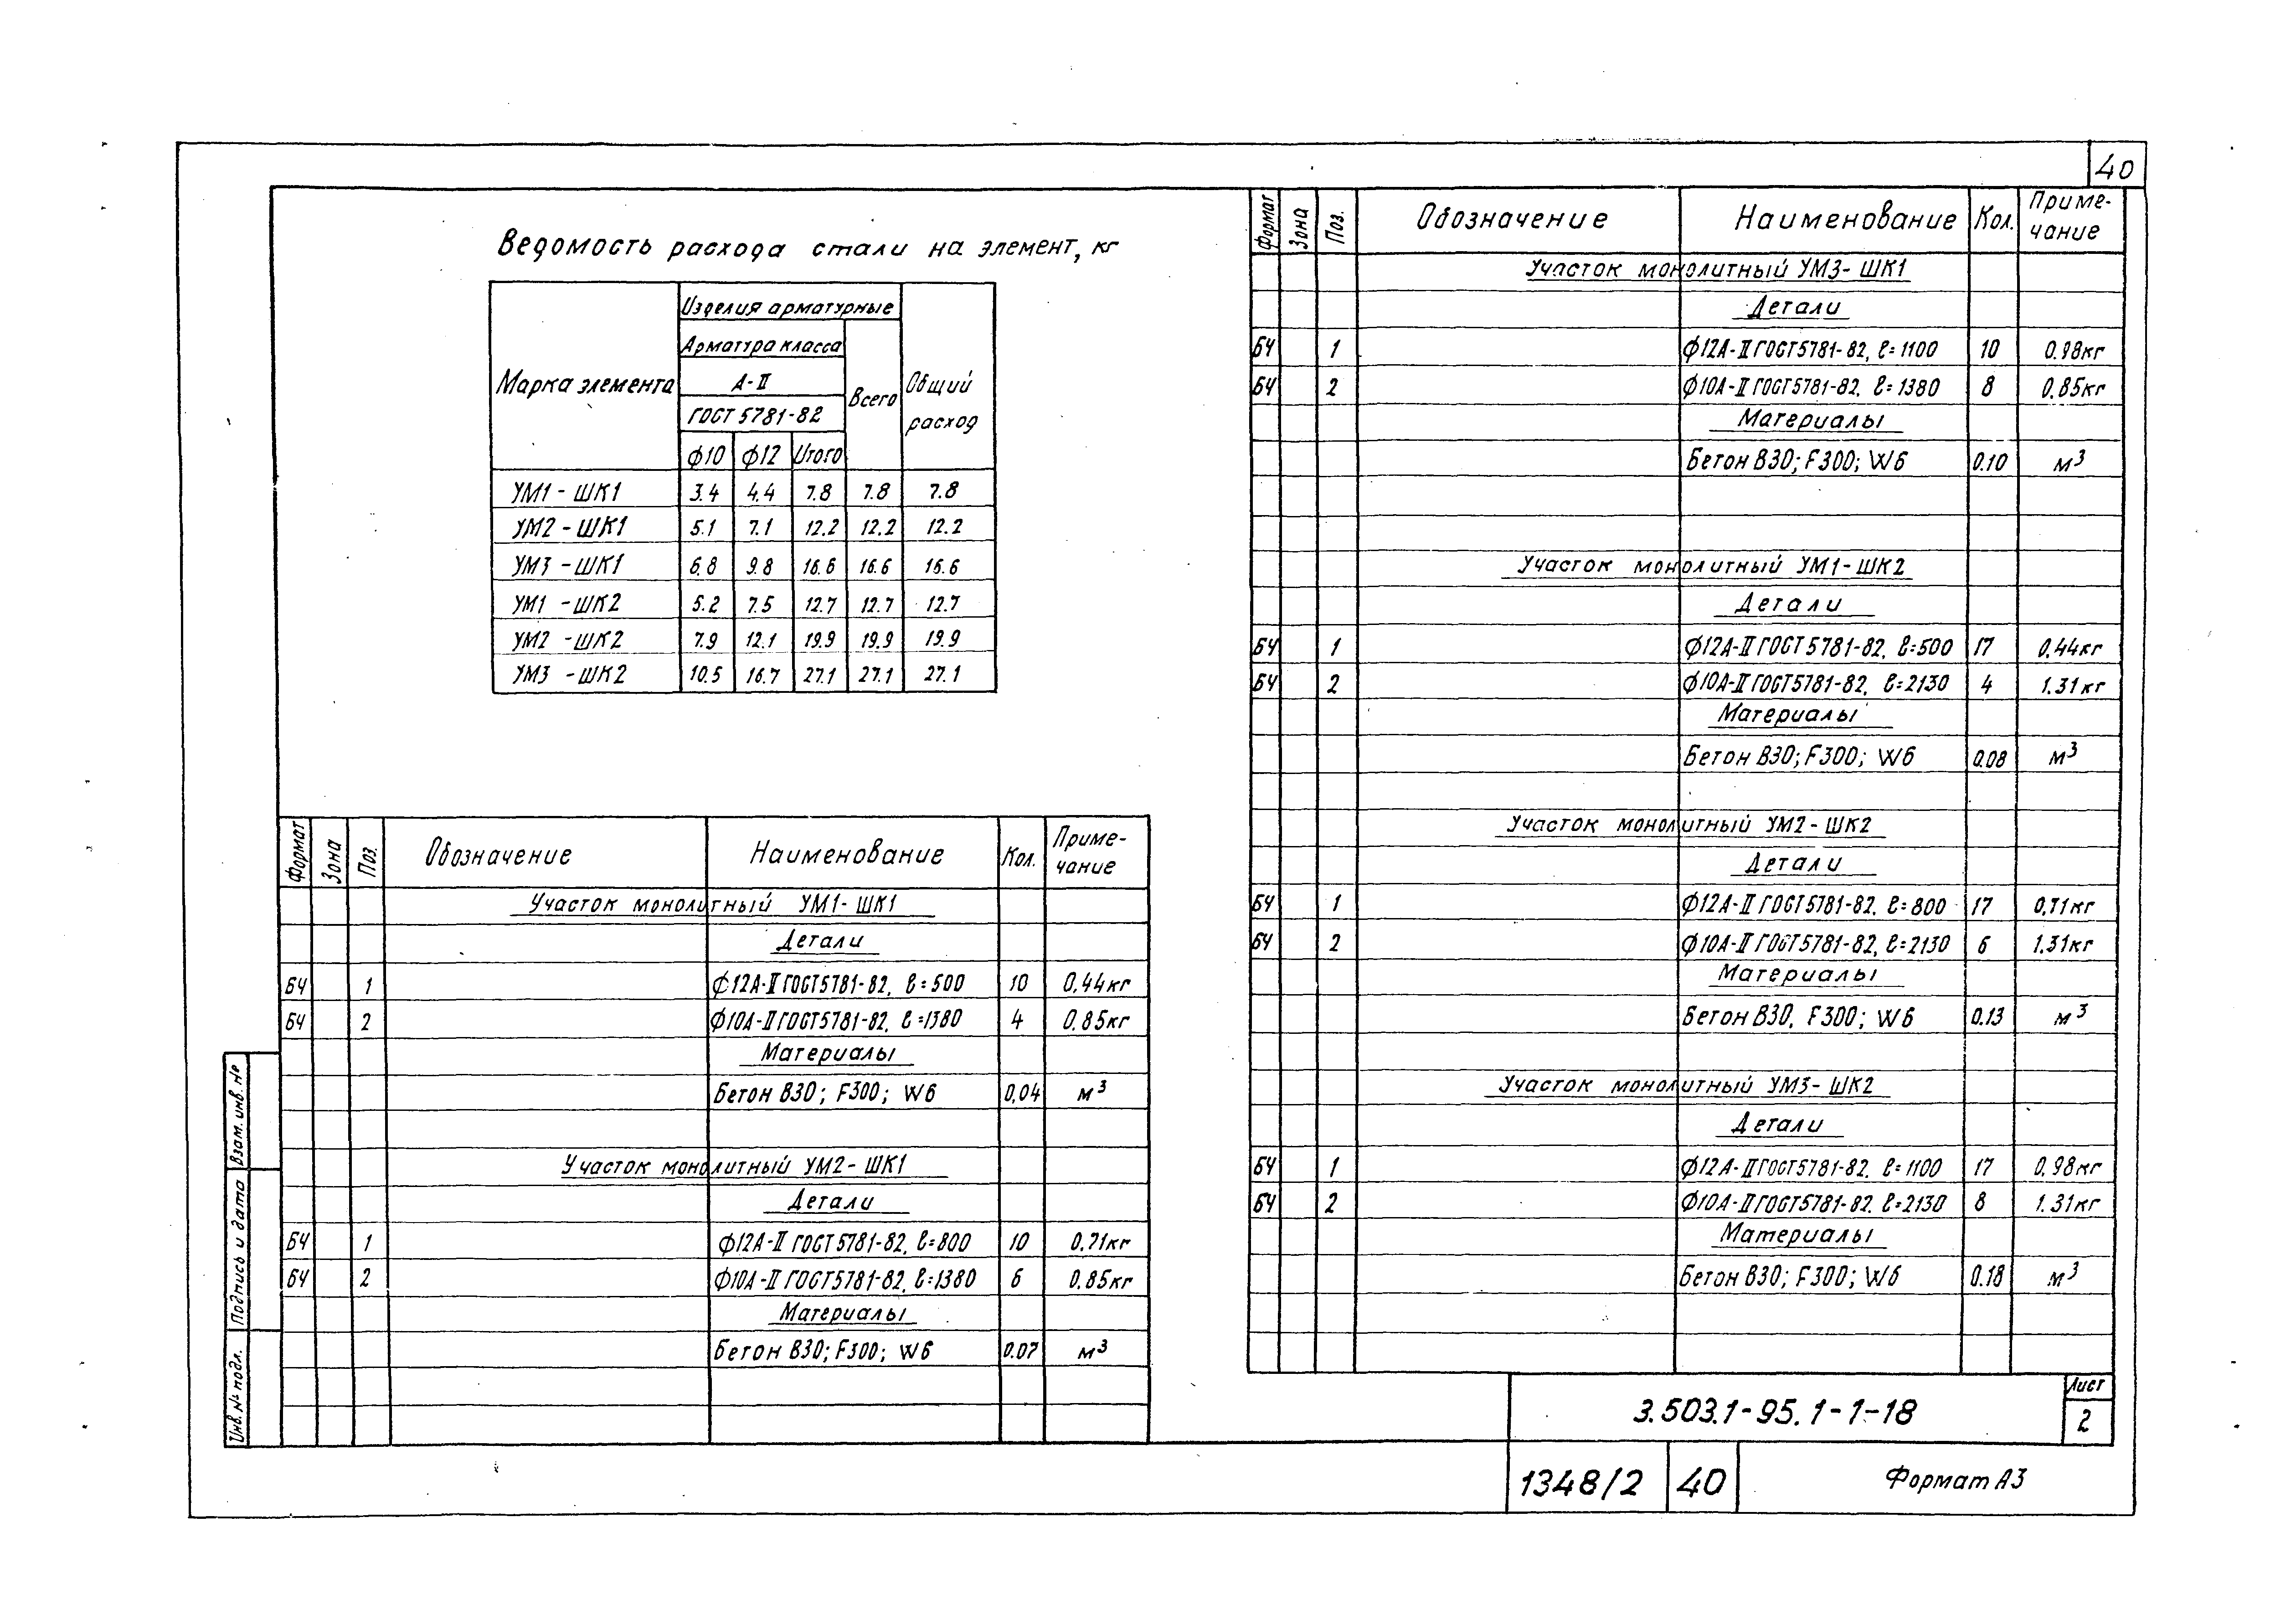 40
Ведомость расхода стали на элемент, кг
Марка элемента
Изделия арматурные
Арматура класса
А-II
ГОСТ 5781-82
Всего
Общий расход
ф10 ф12 Итого
УМ1 - ШК1 3.4 4.4 7.8 7.8 7.8
УМ2 - ШК1 5.1 7.1 12.2 12.2 12.2
УМ3 - ШК1 6.8 9.8 16.6 16.6 16.6
УМ1 - ШК2 5.2 7.5 12.7 12.7 12.7
УМ2 - ШК2 7.9 12.1 19.9 19.9 19.9
УМ3 - ШК2 10.5 16.7 27.1 27.1 27.1
Формат Зона Поз. Обозначение Наименование Кол. Приме-
чание
Участок монолитный УМ1- ШК1
Детали
БЧ 1 ф12А-II ГОСТ5781-82, ℓ=500 10 0,44кг
БЧ 2 ф10А-II ГОСТ5781-82, ℓ=1380 4 0,85кг
Материалы
Бетон В30; F300; W6 0,04 м³
Участок монолитный УМ2- ШК1
Детали
БЧ 1 ф12А-II ГОСТ5781-82, ℓ=800 10 0.71кг
БЧ 2 ф10А-II ГОСТ5781-82, ℓ=1380 6 0,85кг
Материалы
Бетон В30; F300; W6 0.07 м³
Формат Зона Поз. Обозначение Наименование Кол. Приме-
чание
Участок монолитный УМ3- ШК1
Детали
БЧ 1 ф12А-II ГОСТ5781-82, ℓ=1100 10 0.98кг
БЧ 2 ф10А-II ГОСТ5781-82, ℓ=1380 8 0.85кг
Материалы
Бетон В30; F300; W6 0.10 м³
Участок монолитный УМ1- ШК2
Детали
БЧ 1 ф12А-II ГОСТ5781-82, ℓ=500 17 0,44кг
БЧ 2 ф10А-II ГОСТ5781-82, ℓ=2130 4 1.31кг
Материалы
Бетон В30; F300; W6 0.08 м³
Участок монолитный УМ2- ШК2
Детали
БЧ 1 ф12А-II ГОСТ5781-82, ℓ=800 17 0,71кг
БЧ 2 ф10А-II ГОСТ5781-82, ℓ=2130 6 1.31кг
Материалы
Бетон В30, F300; W6 0.13 м³
Участок монолитный УМ3- ШК2
Детали
БЧ 1 ф12А-II ГОСТ5781-82, ℓ=1100 17 0,98кг
БЧ 2 ф10А-II ГОСТ5781-82, ℓ=2130 8 1.31кг
Материалы
Бетон В30; F300; W6 0.18 м³
Взам. инв. №
Подпись и дата
Инв. № подл.
3.503.1-95.1-1-18
Лист
2
1348/2 40 Формат А3